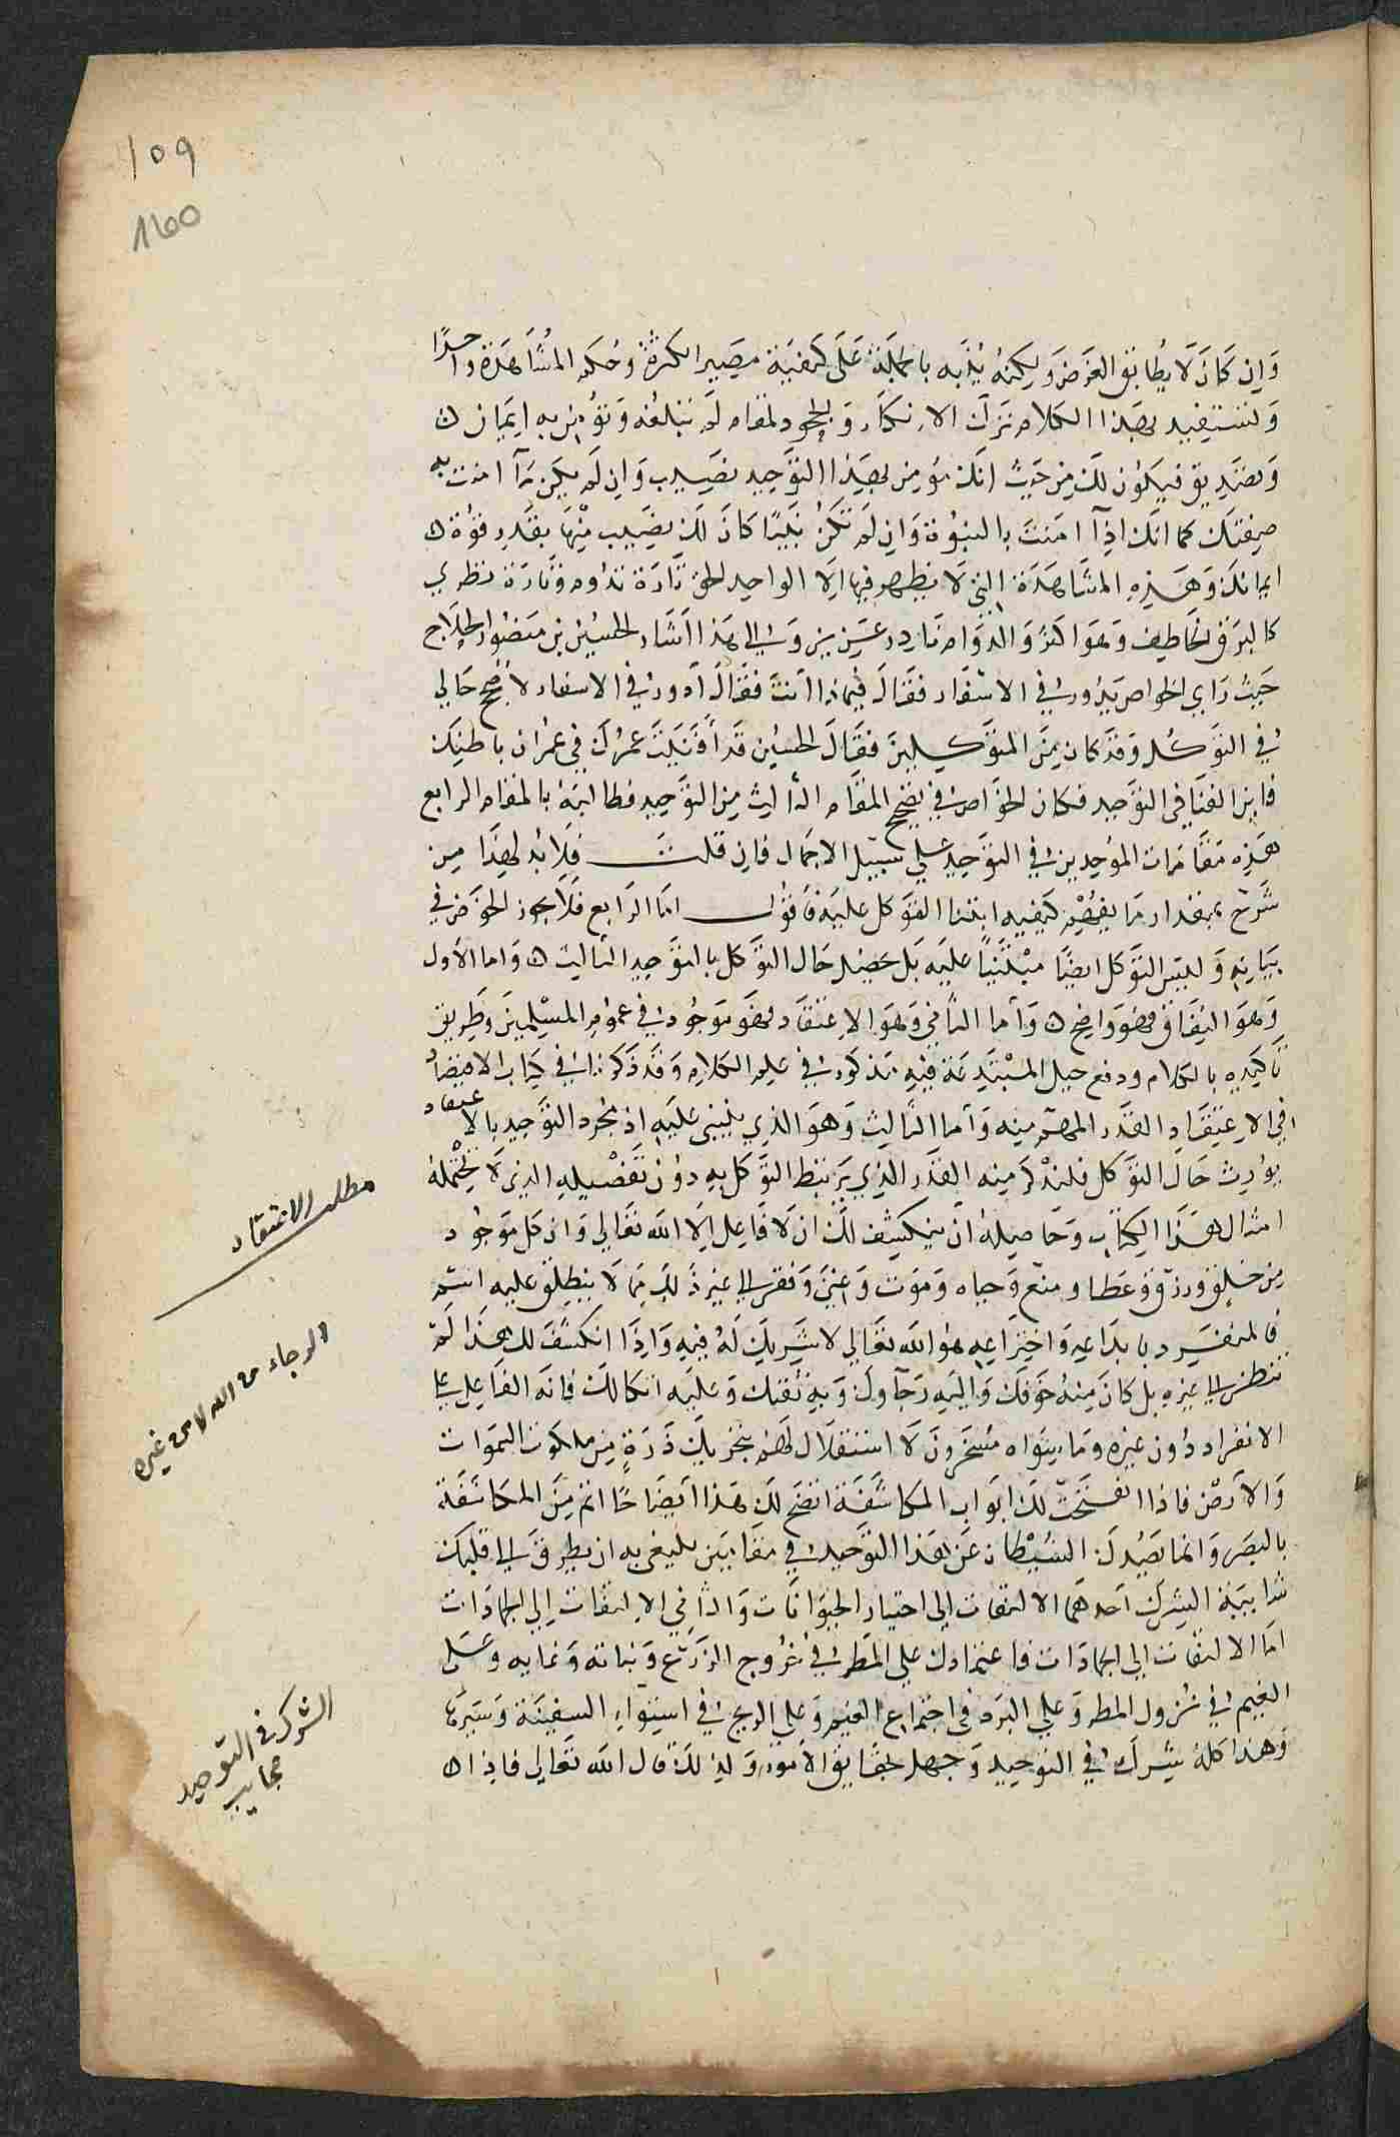 ١٥٩
1100
وان كان لا يطابق الغرض ولكنه ينبه بالجملة على كيفية مصير الكثرة وحكم المشاهدة واحدا
وتستفيد بهذا الكلام ترك الانكار والجحود لمقام لم تبلغه وتؤمن به ايمان
وتصديق فيكون لك من حيث انك مؤمن بهذا التوحيد نصيب وان لم يكن ما امنت به
صفتك كما انك اذا امنت بالنبوة وان لم تكن نبيا كان لك نصيب منها بقدر قوة
ايمانك وهذه المشاهدة التي لا يظهر فيها الا الواحد الحق تارة تدوم وتارة تطري
كالبرق الخاطف وهو اكثر والدوام نادر عزيز والى هذا اشار الحسين بن منصور الحلاج
حيث راي الخواص يدور في الاسفار فقال فيماذا انت فقال ادور في الاسفار لاصحح حالي
في التوكل وقد كان من المتوكلين فقال الحسين قد افنيت عمرك في عمران باطنك
فاين الفنا في التوحيد فكان الخواص في تصحيح المقام الثالث من التوحيد فطالبه بالمقام الرابع
هذه مقامات الموحدين في التوحيد علي سبيل الاجمال فان قلت فلا بد لهذا من
شرح بمقدار ما يفهم كيفيه ابتنا التوكل عليه فاقول اما الرابع فلا يجوز الخوض في
بيانه وليس التوكل ايضا مبتنيا عليه بل يحصل حال التوكل بالتوحيد الثالث واما الاول
وهو النفاق فهو واضح واما الثاني وهو الاعتقاد فهو موجود في عموم المسلمين وطريق
تاكيده بالكلام ودفع حيل المبتدعة فيه مذكور في علم الكلام وقد ذكرنا في كتاب الاقتصاد
في الاعتقاد القدر المهم منه واما الثالث وهو الذي يبني عليه اذ مجرد التوحيد بالاعتقاد
يورث حال التوكل فلنذكر منه القدر الذي يرتبط التوكل به دون تفصيله الذي لا يحتمله
امثال هذا الكتاب وحاصله ان ينكشف لك ان لا فاعل الا الله تعالي وان كل موجود
من خلق ورزق وعطا ومنع وحياه وموت وغنى وفقر الى غير ذلك مما لا ينطلق عليه اسم
فالمنفرد بابداعه واختراعه هو الله تعالي لا شريك له فيه واذا انكشف لك هذا لم
تنظر الى غيره بل كان منه خوفك واليه رجاوك وبه ثقتك وعليه اتكالك فانه الفاعل علي
الانفراد دون غيره وما سواه مسخرون لا استقلال لهم بتحريك ذرة من ملكوت السموات
والارض فاذا انفتحت لك ابواب المكاشفة اتضح لك هذا ايضاحا اتم من المكاشفة
بالبصر وانما يصدك الشيطان عن هذا التوحيد في مقامين يبتغي به ان يطرق الى قلبك
شايبة الشرك احدهما الالتفات الى اختيار الحيوانات والثاني الالتفات الى الجمادات
اما الالتفات الى الجمادات فاعتمادك علي المطر في خروج الزرع ونباته ونمايه وعلى
الغيم في نزول المطر وعلي البرد في اجتماع الغيم وعلي الريح في استواء السفينة وسيرها
وهذا كله شرك في التوحيد وجهل بحقايق الامور ولذلك قال الله تعالى فاذا
مطلب الاعتقاد
الرجاء من الله لا من غيره
الشرك في التوحيد
عجايب